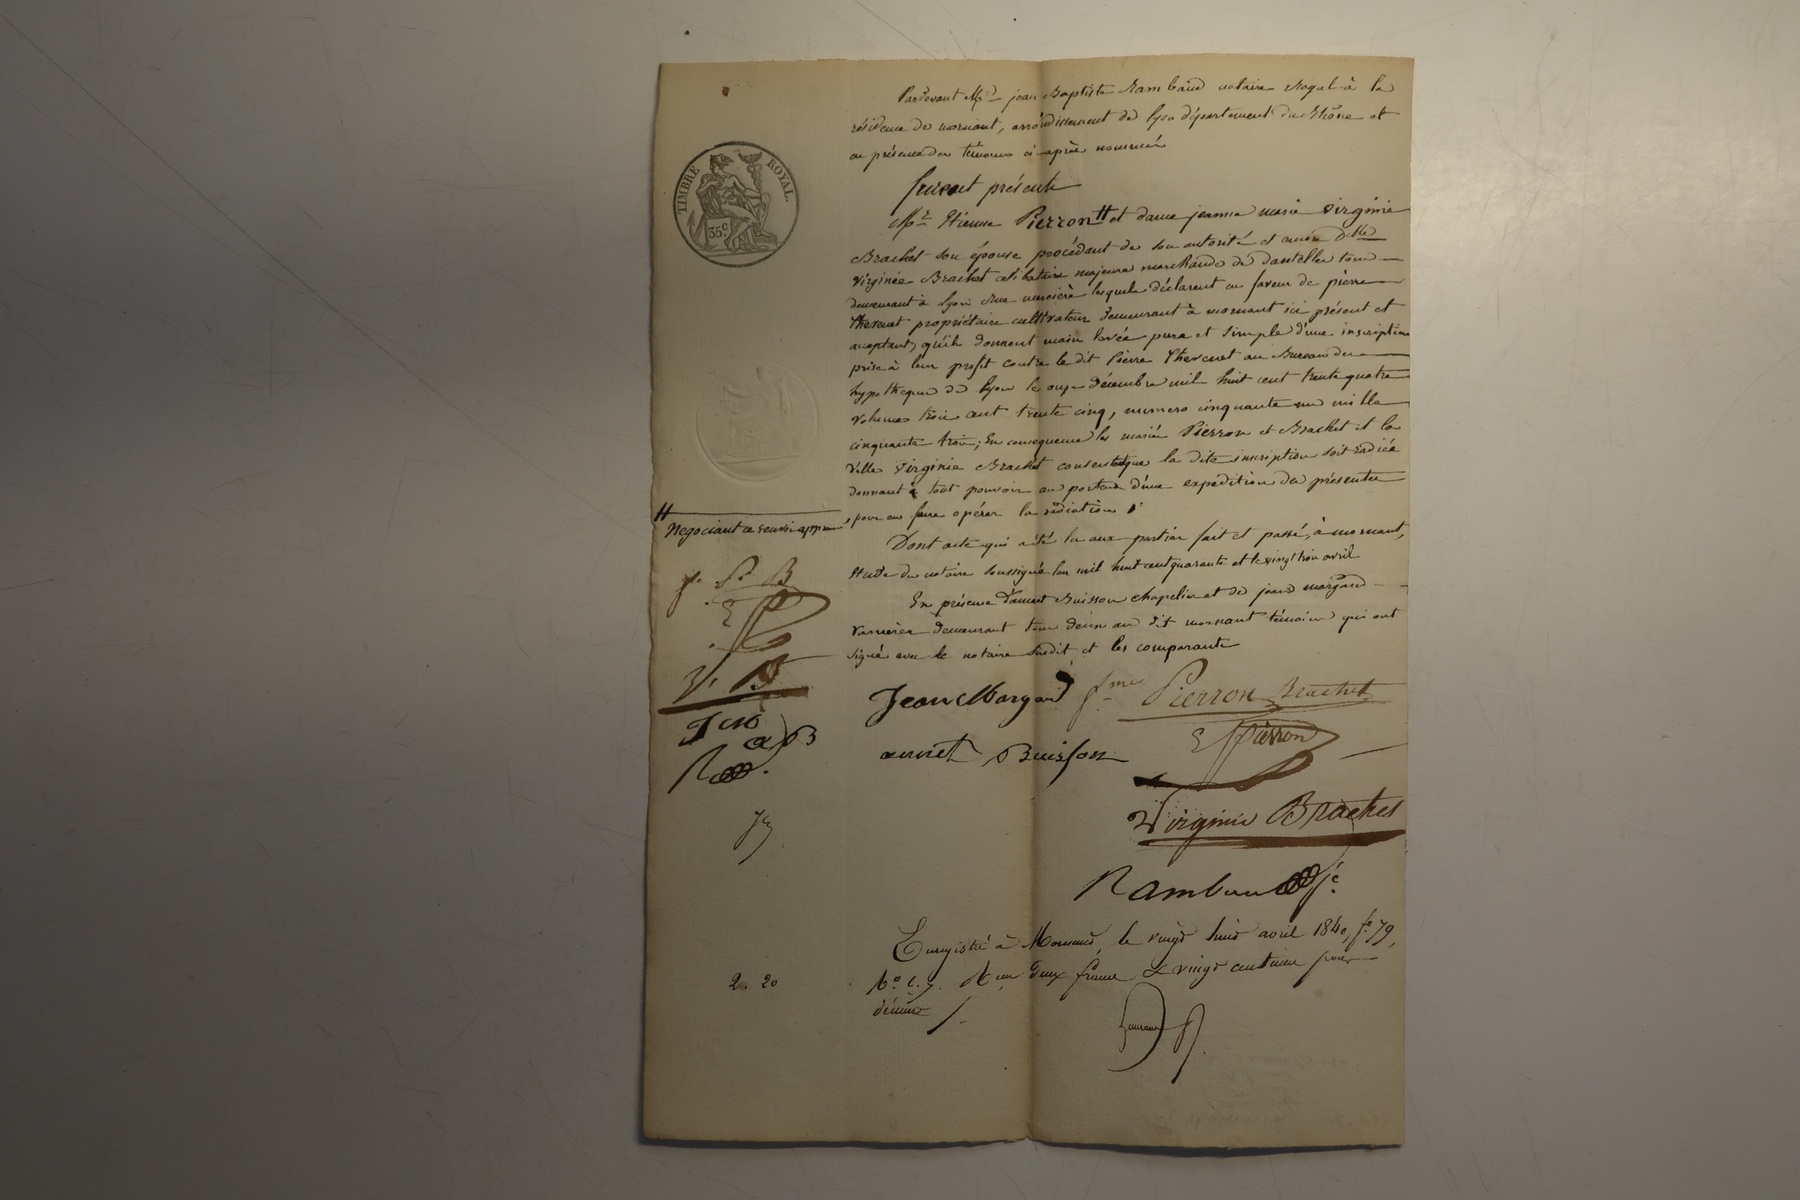 TIMBRE ROYAL.
35 c.
Pardevant Me jean Baptiste Rambaud notaire Royal à la
résidence de mornant, arrondissement de lyon département du Rhône et
en présence des témoins ci-après nommés
furent présents
Mr. Etienne Pierron # et dame jeanne marie virginie
Brachet son épouse procédant de son autorité et autre Delle
virginie Brachet célibataire majeure marchande de dantelles tous
demeurant à Lyon rue mercière lesquels déclarent en faveur de pierre
thevenet propriétaire cultivateur demeurant à mornant ici présent et
acceptant, qu'ils donnent main levée pure et simple d'une inscription
prise à leur profit contre le dit Pierre thevenet au Bureau du
hypothèques de lyon le onze décembre mil huit cent trente quatre
volumes trois cent trente cinq, numero cinquante un mille
cinquante trois; En consequence les mariés Pierron et Brachet et la
delle virginie Brachet consentent que la dite inscription soit radiée
donnant à tout pouvoir au porteur d'une expedition des présentes
pour en faire opérer la radiation
# Negociant ce renvoi approuvé
Dont acte qui a été lu aux parties fait et passé, à mornant,
étude du notaire soussigné l'an mil huit cent quarante et le vingt trois avril
En présence d'annet Buisson chapelier et de jean margand
demeurant tous deux au dit mornant témoins qui ont
signé avec le notaire susdit et les comparants
fe Pn B
E P
V. B
a B
Jean Margand fme Pierron Brachet
annet Buisson E Pierron
Virginie Brachet
Rambaud
Enregistré à Mornand, le vingt huit avril 1840, fo 79,
2. 20
deux francs & vingt centimes pour
décime